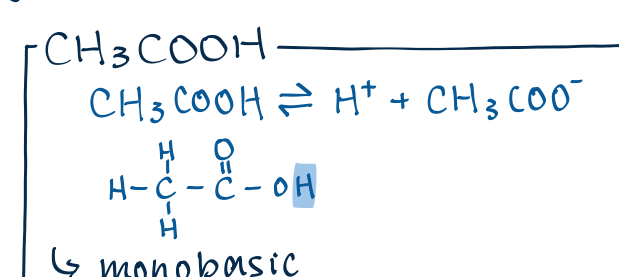 CH₃COOH
CH₃COOH ⇌ H⁺ + CH₃COO⁻
H O
H-C-C-OH
H
↳ monobasic